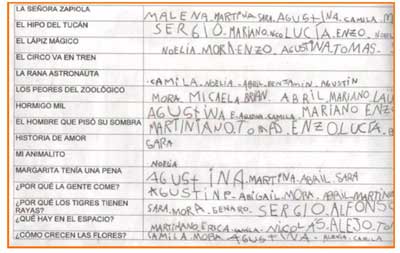 LA SEÑORA ZAPIOLA MALENA. MARTINA SARA. AGUSTINA. CAMILA. M
EL HIPO DEL TUCÁN SERGIO. MARIANO. NICO LUCÍA. ENZO.
EL LÁPIZ MÁGICO NOELIA MORA ENZO. AGUSTINA TOMAS. S
EL CIRCO VA EN TREN
LA RANA ASTRONÁUTA CAMILA. NOELIA. ABRIL. BENJAMIN. AGUSTIN
LOS PEORES DEL ZOOLÓGICO MORA. MICAELA BRIAN. ABRIL MARIANO LAU
HORMIGO MIL AGUSTINA CAMILA. MARIANO ENZO
EL HOMBRE QUE PISÓ SU SOMBRA MARTINIANO. TOMAS. ENZO LUCIA.
HISTORIA DE AMOR SARA
MI ANIMALITO
MARGARITA TENÍA UNA PENA NOELIA
¿POR QUÉ LA GENTE COME? AGUSTINA. MARTINA. ABRIL. SARA
¿POR QUÉ LOS TIGRES TIENEN RAYAS? ABIGAIL. MORA. ABRIL. MARTINA
¿QUÉ HAY EN EL ESPACIO? SARA. MORA. GENARO. SERGIO. ALFONSO
¿CÓMO CRECEN LAS FLORES? MARTINIANO. ERICA. CAMILA. NICOLAS. ALEJO. TO
CAMILA MORA AGUSTINA.